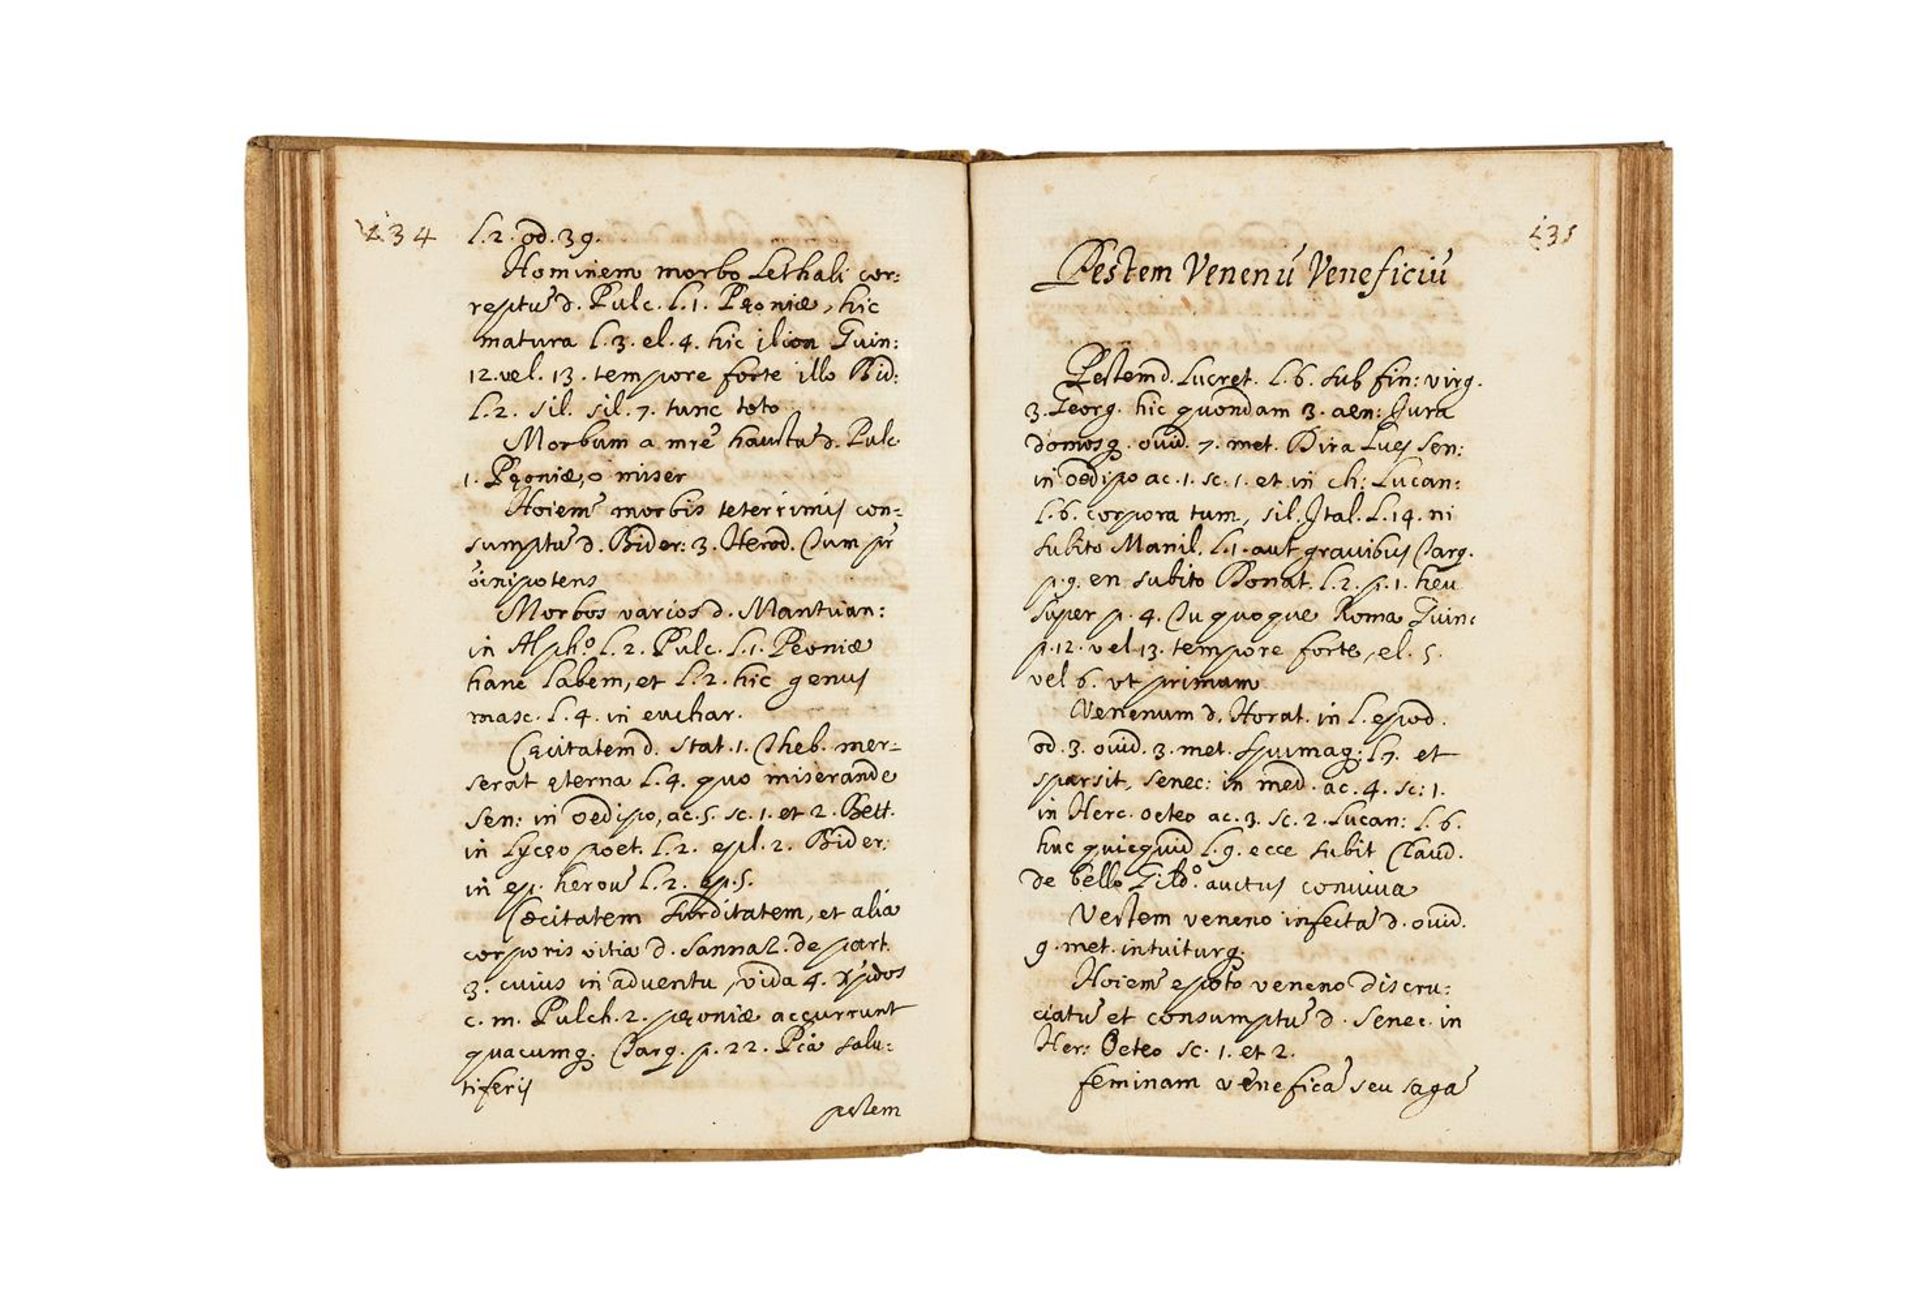 234
l.2. od. 39.
Hominem morbo Lethali cor:
reptũ d. Pulc. l.1. Pęoniæ, hic
matura l.3. el.4. hic ilion Guin:
12. vel. 13. tempore forte illo Bid:
l.2. sil. sil. 7. tunc toto
Morbum a mrẽ haustũ d. Pulc
1. Pęoniæ, o miser
Hoiem̃ morbis teterrimis con-
sumptũ d. Bider: 3. Herod. Cum pr̃
õinipotens
Morbos varios d. Mantuan:
in Alphº l.2. Pulc. l.1. Peoniæ
hanc labem, et l.2. hic genus
masc. l.4. in euchar.
Cęcitatem d. Stat. 1. Theb. mer-
serat ęterna l.4. quo miserande
Sen: in Oedipo, ac.5. sc.1. et 2. Bett.
in Lycęo poet. l.2. epl.2. Bider:
in ep. heroũ l.2. ep.5.
Cæcitatem surditatem, et alia
corporis vitia d. Sannaz. de part.
3. cuius in adventu, vida 4. Xp̃idos
c. m. Pulch. 2. pęoniæ accurrunt
quacumq. Targ. p. 22. Pia salu:
tiferis
pestem
235
Pestem Venenũ Veneficiũ
Pestem d. Lucret. l.6. sub fin: virg.
3. Georg. hic quondam 3. aen: Iura
domosq. ouid. 7. met. Dira Lues Sen:
in Oedipo ac.1. sc.1. et in ch: Lucan:
l.6. corpora tum, sil. Ital. l.14. ni
subito Manil. l.1. aut gravibus Targ.
p.9. en subito Bonat. l.2. p.1. heu
super p.4. Tu quoque Roma Guin:
p.12. vel 13. tempore forte, el. 5.
vel 6. vt primum
Venenum d. Horat. in l. epod.
od. 3. ouid. 3. met. spumaq; l.7. et
sparsit, Senec: in med. ac. 4. sc: 1.
in Herc. Oeteo ac. 3. sc. 2. Lucan: l.6.
huc quicquid l.9. ecce subit Claud.
de bello Gildº. auctus conviva
Vestem veneno infectã d. ouid.
9. met. intuiturq.
Hoiem̃ epoto veneno discru:
ciatũ et consumptũ d. Senec. in
Her: Oeteo sc. 1. et 2.
feminam veneficã seu sagã